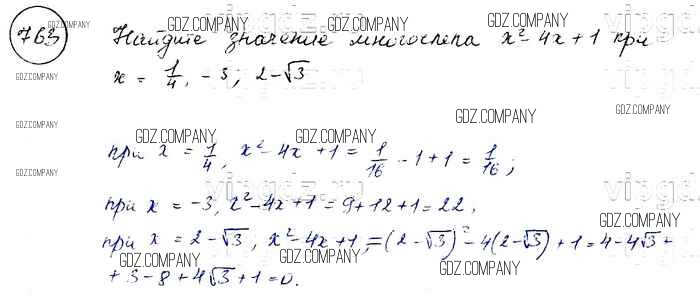 763 Найдите значение многочлена x² - 4x + 1 при
x = 1/4, -3, 2 - √3
при x = 1/4, x² - 4x + 1 = 1/16 - 1 + 1 = 1/16;
при x = -3, x² - 4x + 1 = 9 + 12 + 1 = 22,
при x = 2 - √3, x² - 4x + 1, = (2 - √3)² - 4(2 - √3) + 1 = 4 - 4√3 +
+ 3 - 8 + 4√3 + 1 = 0.
GDZ.COMPANY
GDZ.COMPANY
GDZ.COMPANY
GDZ.COMPANY
GDZ.COMPANY
GDZ.COMPANY
GDZ.COMPANY
GDZ.COMPANY
GDZ.COMPANY
GDZ.COMPANY
GDZ.COMPANY
GDZ.COMPANY
GDZ.COMPANY